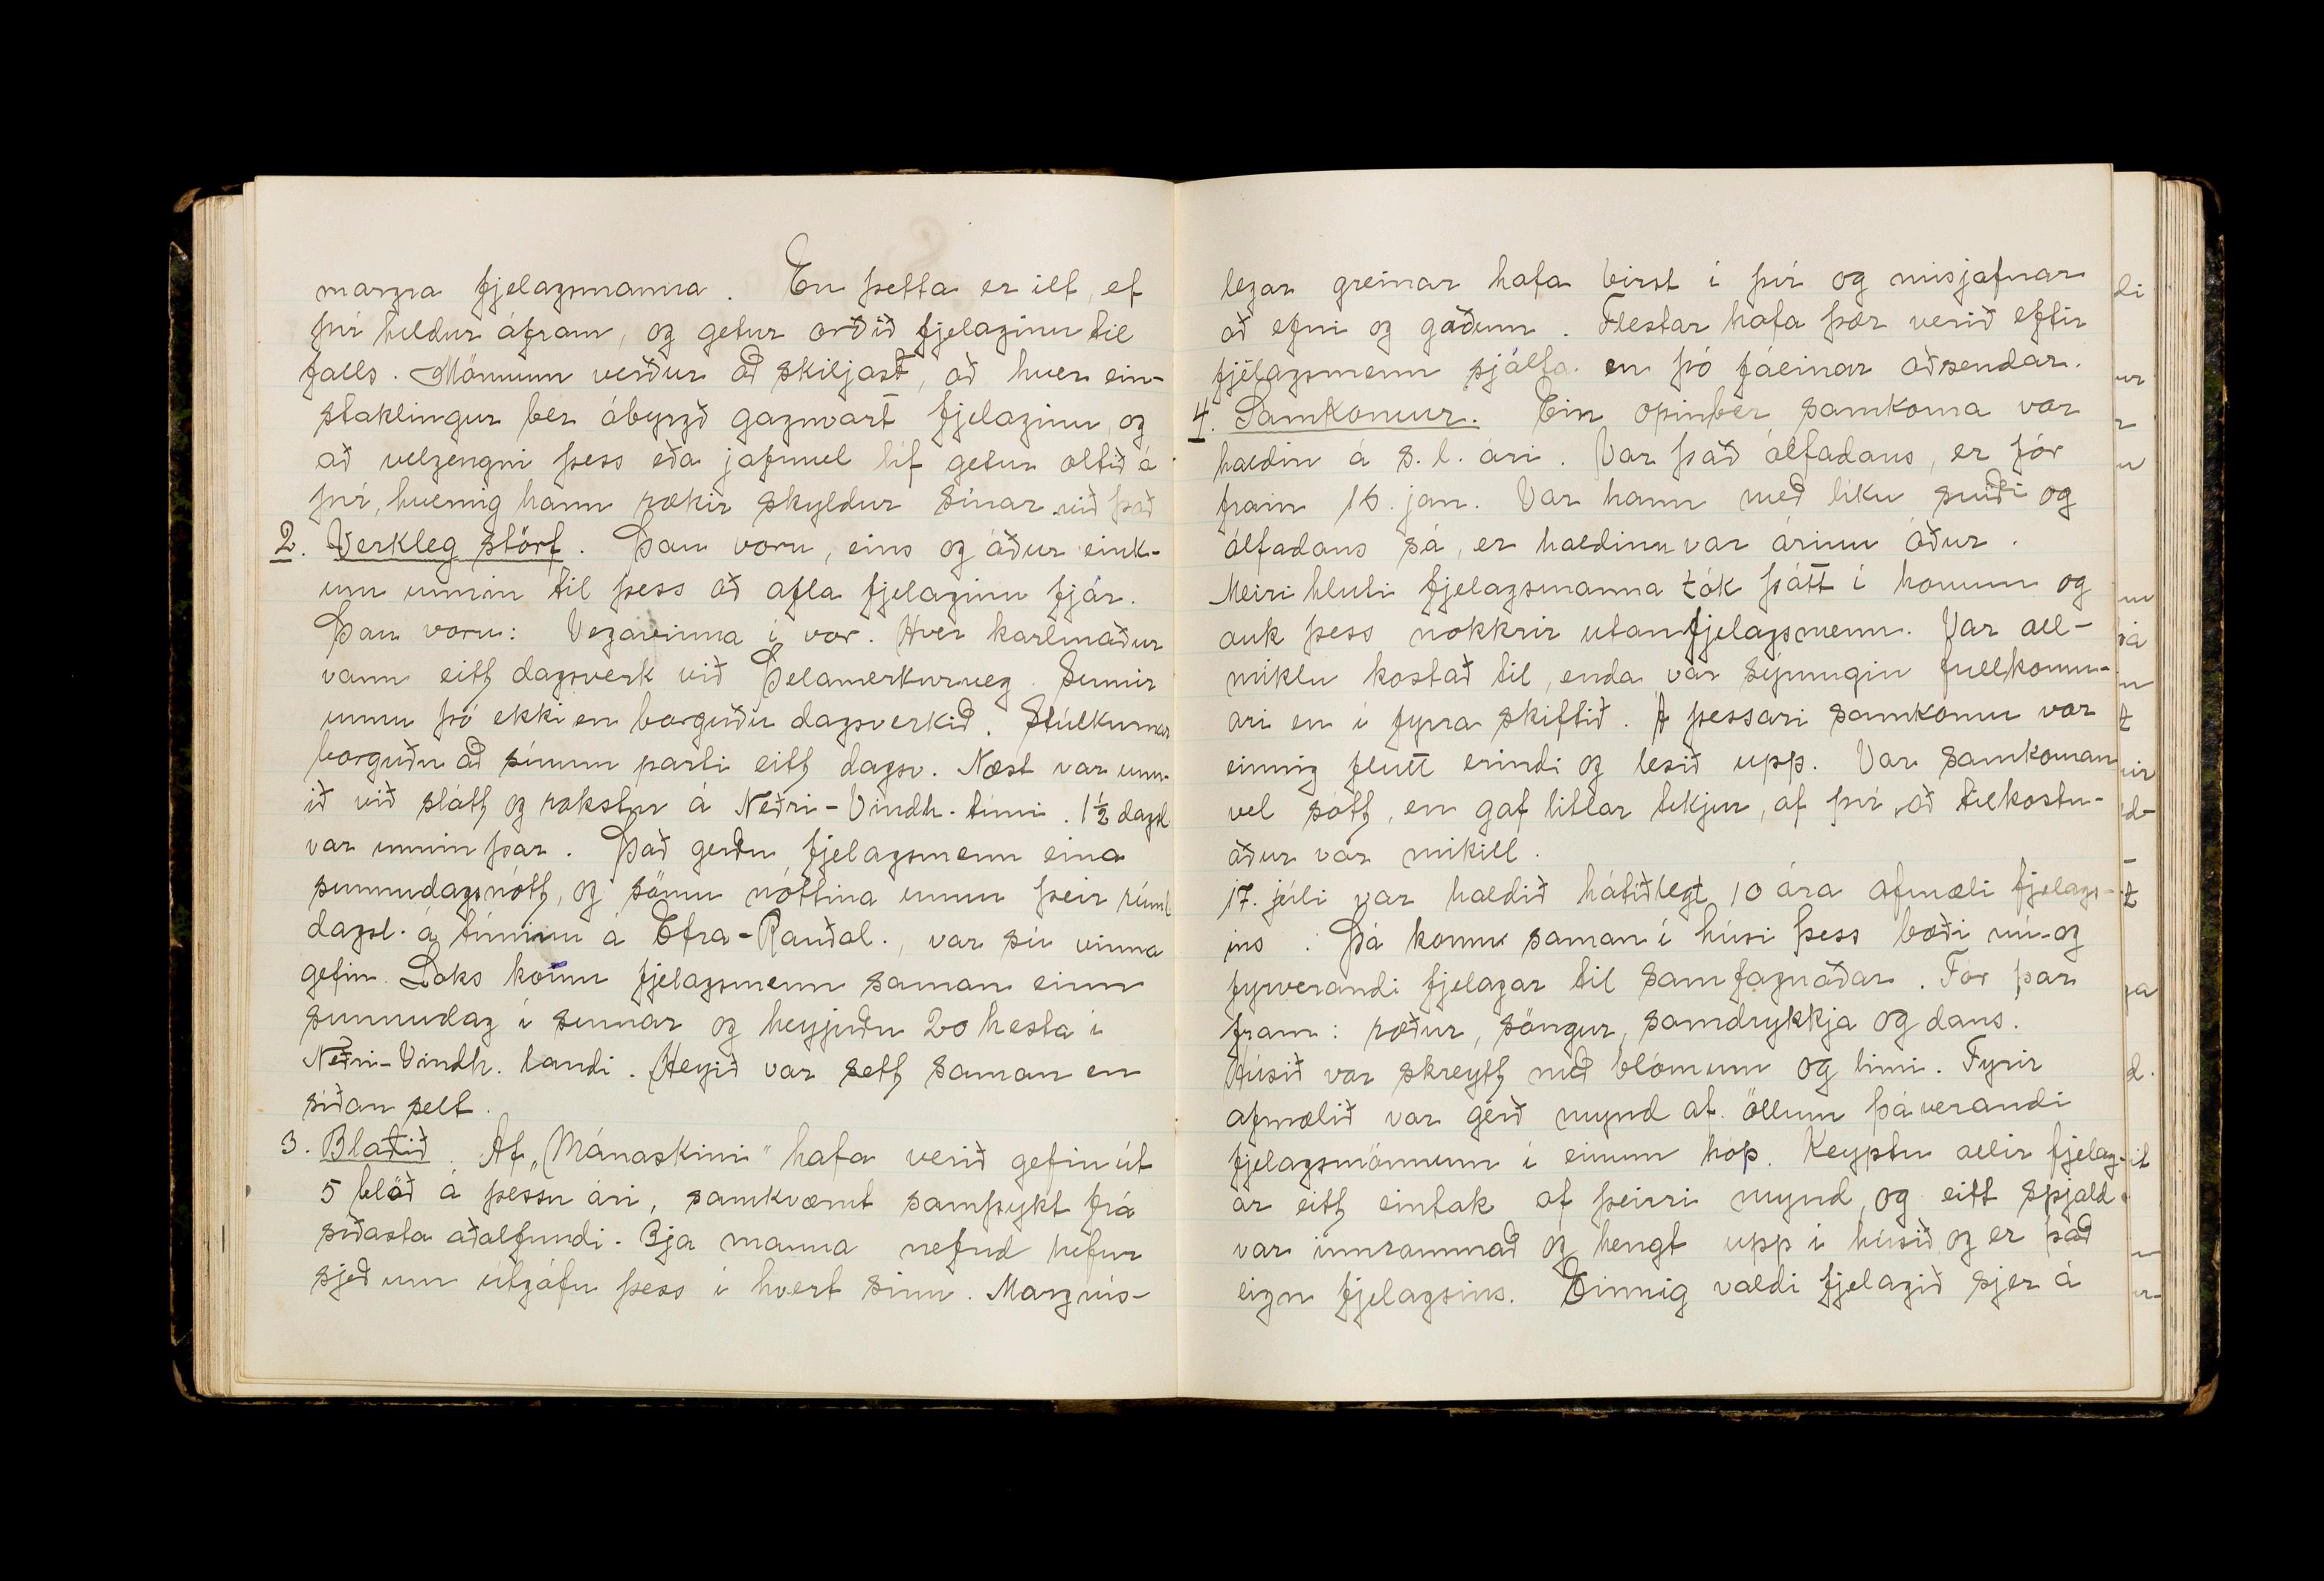 margra fjelagsmanna. En þetta er ilt, ef
því heldur áfram, og getur orðið fjelaginu til
falls. Mönnum verður að skiljast, að hver ein-
staklingur ber ábyrgð gagnvart fjelaginu, og
að velgengni þess eða jafnvel líf getur oltið á
því, hvernig hann rækir skyldur sínar við það
2. Verkleg störf. Þau voru, eins og áður eink-
um unnin til þess að afla fjelaginu fjár.
Þau voru: Vegavinna í vor. Hver karlmaður
vann eitt dagsverk við Þelamerkurveg. Sumir
unnu þó ekki en borguðu dagsverkið. Stúlkurnar
borguðu að sínum parti eitt dagsv. Næst var unn-
ið við slátt og rakstur á Neðri-Vindh. túni. 1½ dagsl
var unnin þar. Það gerðu fjelagsmenn eina
sunnudagsnótt, og sömu nóttina unnu þeir
dagsl. á túninu á Efra-Rauðal., var sú vinna
gefin. Loks komu fjelagsmenn saman einn
sunnudag í sumar og heyjuðu 20 hesta í
Neðri-Vindh. landi. Heyið var sett saman en
síðan selt.
3. Blaðið. Af „Mánaskini" hafa verið gefin út
5 blöð á þessu ári, samkvæmt samþykt frá
síðasta aðalfundi. 3ja manna nefnd hefur
sjeð um útgáfu þess í hvert sinn. Margvís-
legar greinar hafa birst í því og misjafnar
að efni og gæðum. Flestar hafa þær verið eftir
fjelagsmenn sjálfa en þó fáeinar aðsendar.
4. Samkomur. Ein opinber samkoma var
haldin á s.l. ári. Var það álfadans, er fór
fram 16. jan. Var hann með líku sniði og
álfadans sá, er haldinn var árinu áður.
Meiri hluti fjelagsmanna tók þátt í honum og
auk þess nokkrir utanfjelagsmenn. Var all-
miklu kostað til, enda var sýningin fullkomn-
ari en í fyrra skiftið. Á þessari samkomu var
einnig flutt erindi og lesið upp. Var samkoman
vel sótt, en gaf litlar tekjur, af því að tilkostn-
aður var mikill.
17. júlí var haldið hátíðlegt 10 ára afmæli fjelags-
ins. Þá komu saman í húsi þess bæði nú- og
fyrverandi fjelagar til samfagnaðar. Fór þar
fram: ræður, söngur, samdrykkja og dans.
Húsið var skreytt með blómum og limi. Fyrir
afmælið var gerð mynd af öllum þáverandi
fjelagsmönnum í einum hóp. Keyptu allir fjelag-
ar eitt eintak af þeirri mynd, og eitt spjald
var innrammað og hengt upp í húsið og er það
eign fjelagsins. Einnig valdi fjelagið sjer á